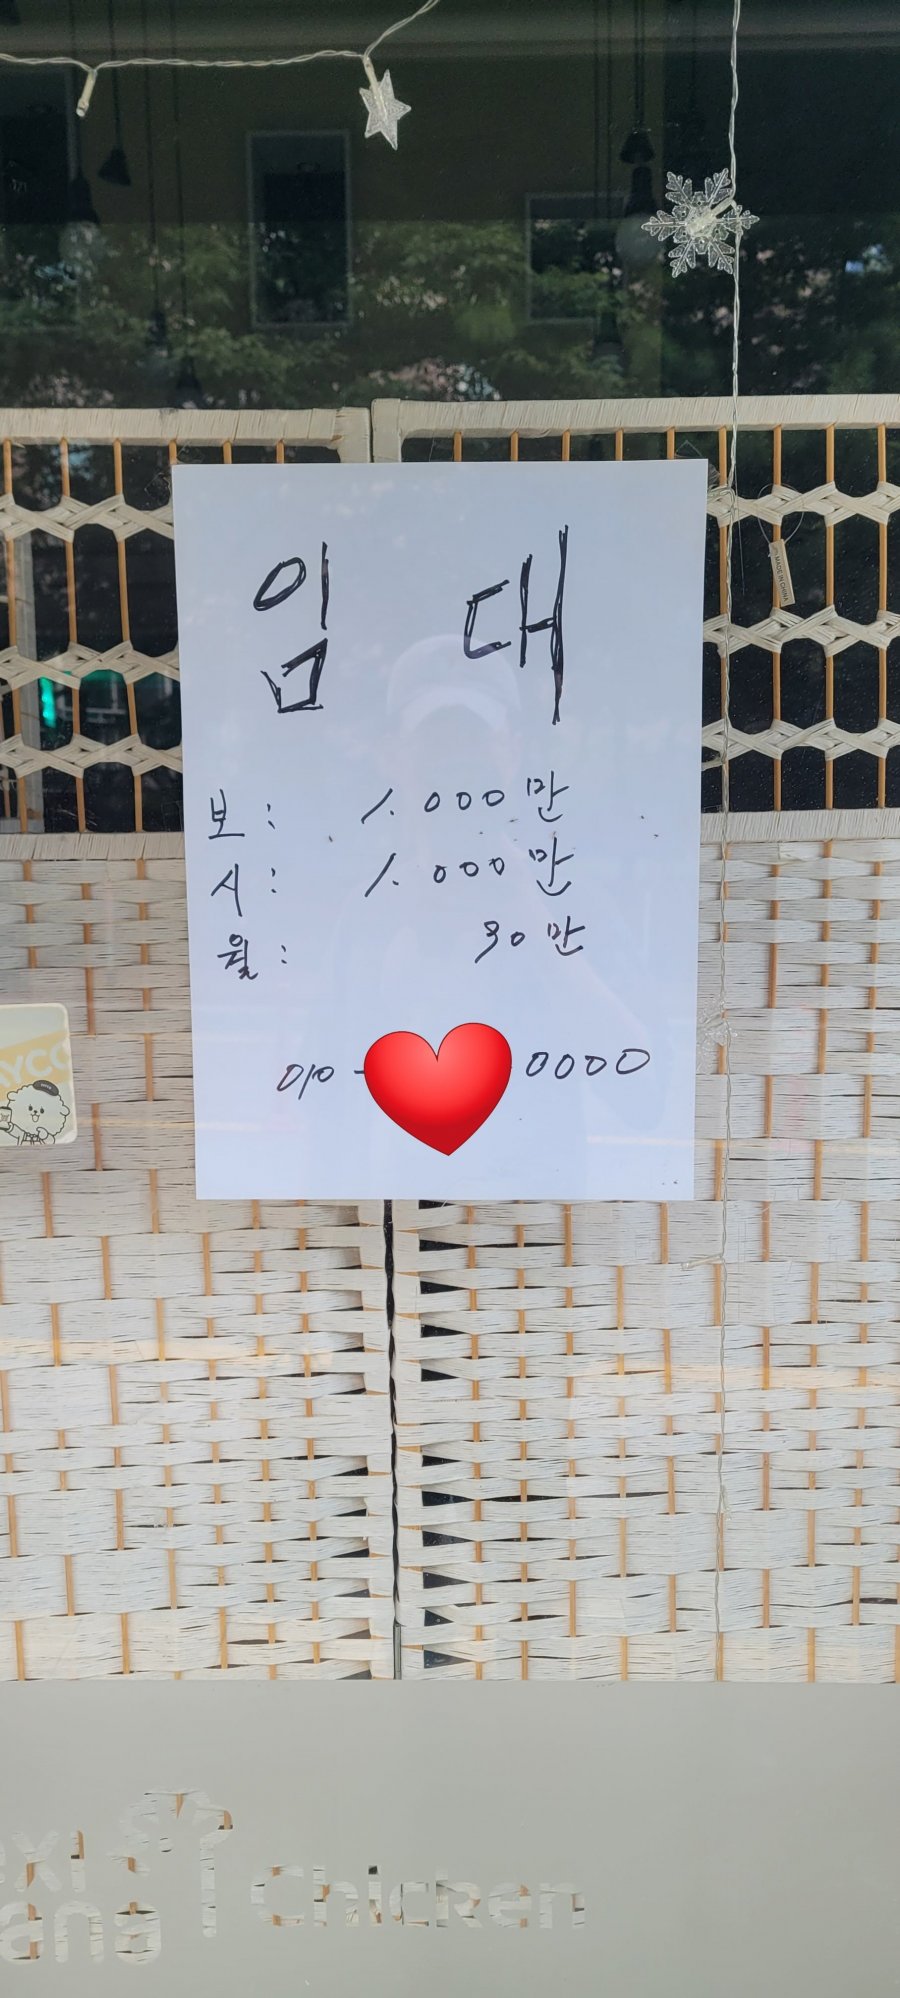 MADE IN CHINA
임 대
보: 1.000만
시: 1.000만
월: 90만
010 - 0000
Chicken